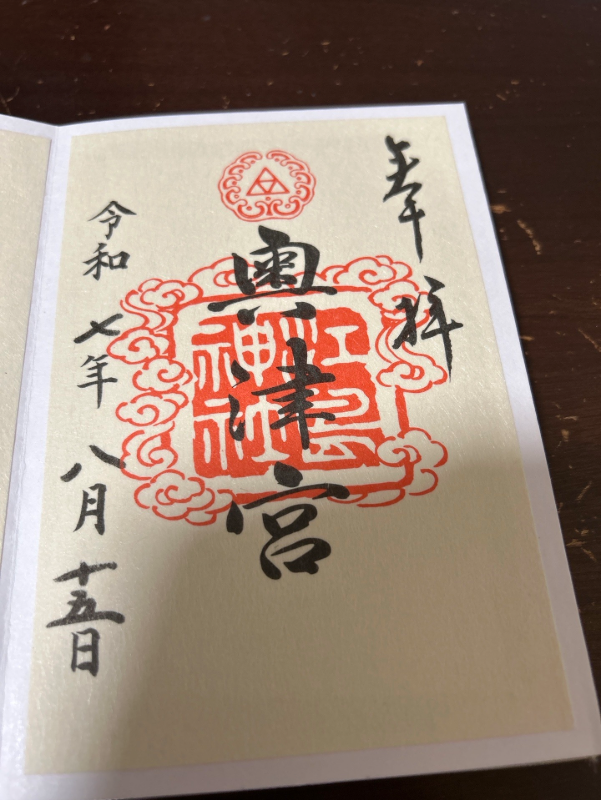 奉拝
奥津宮
江島
神社
令和七年八月十五日